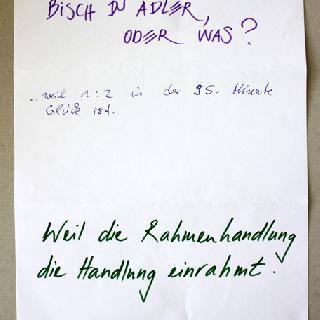 BISCH DU ADLER,
ODER WAS?
...weil 1:2 in der 95. Minute
Glück ist.
Weil die Rahmenhandlung
die Handlung einrahmt.